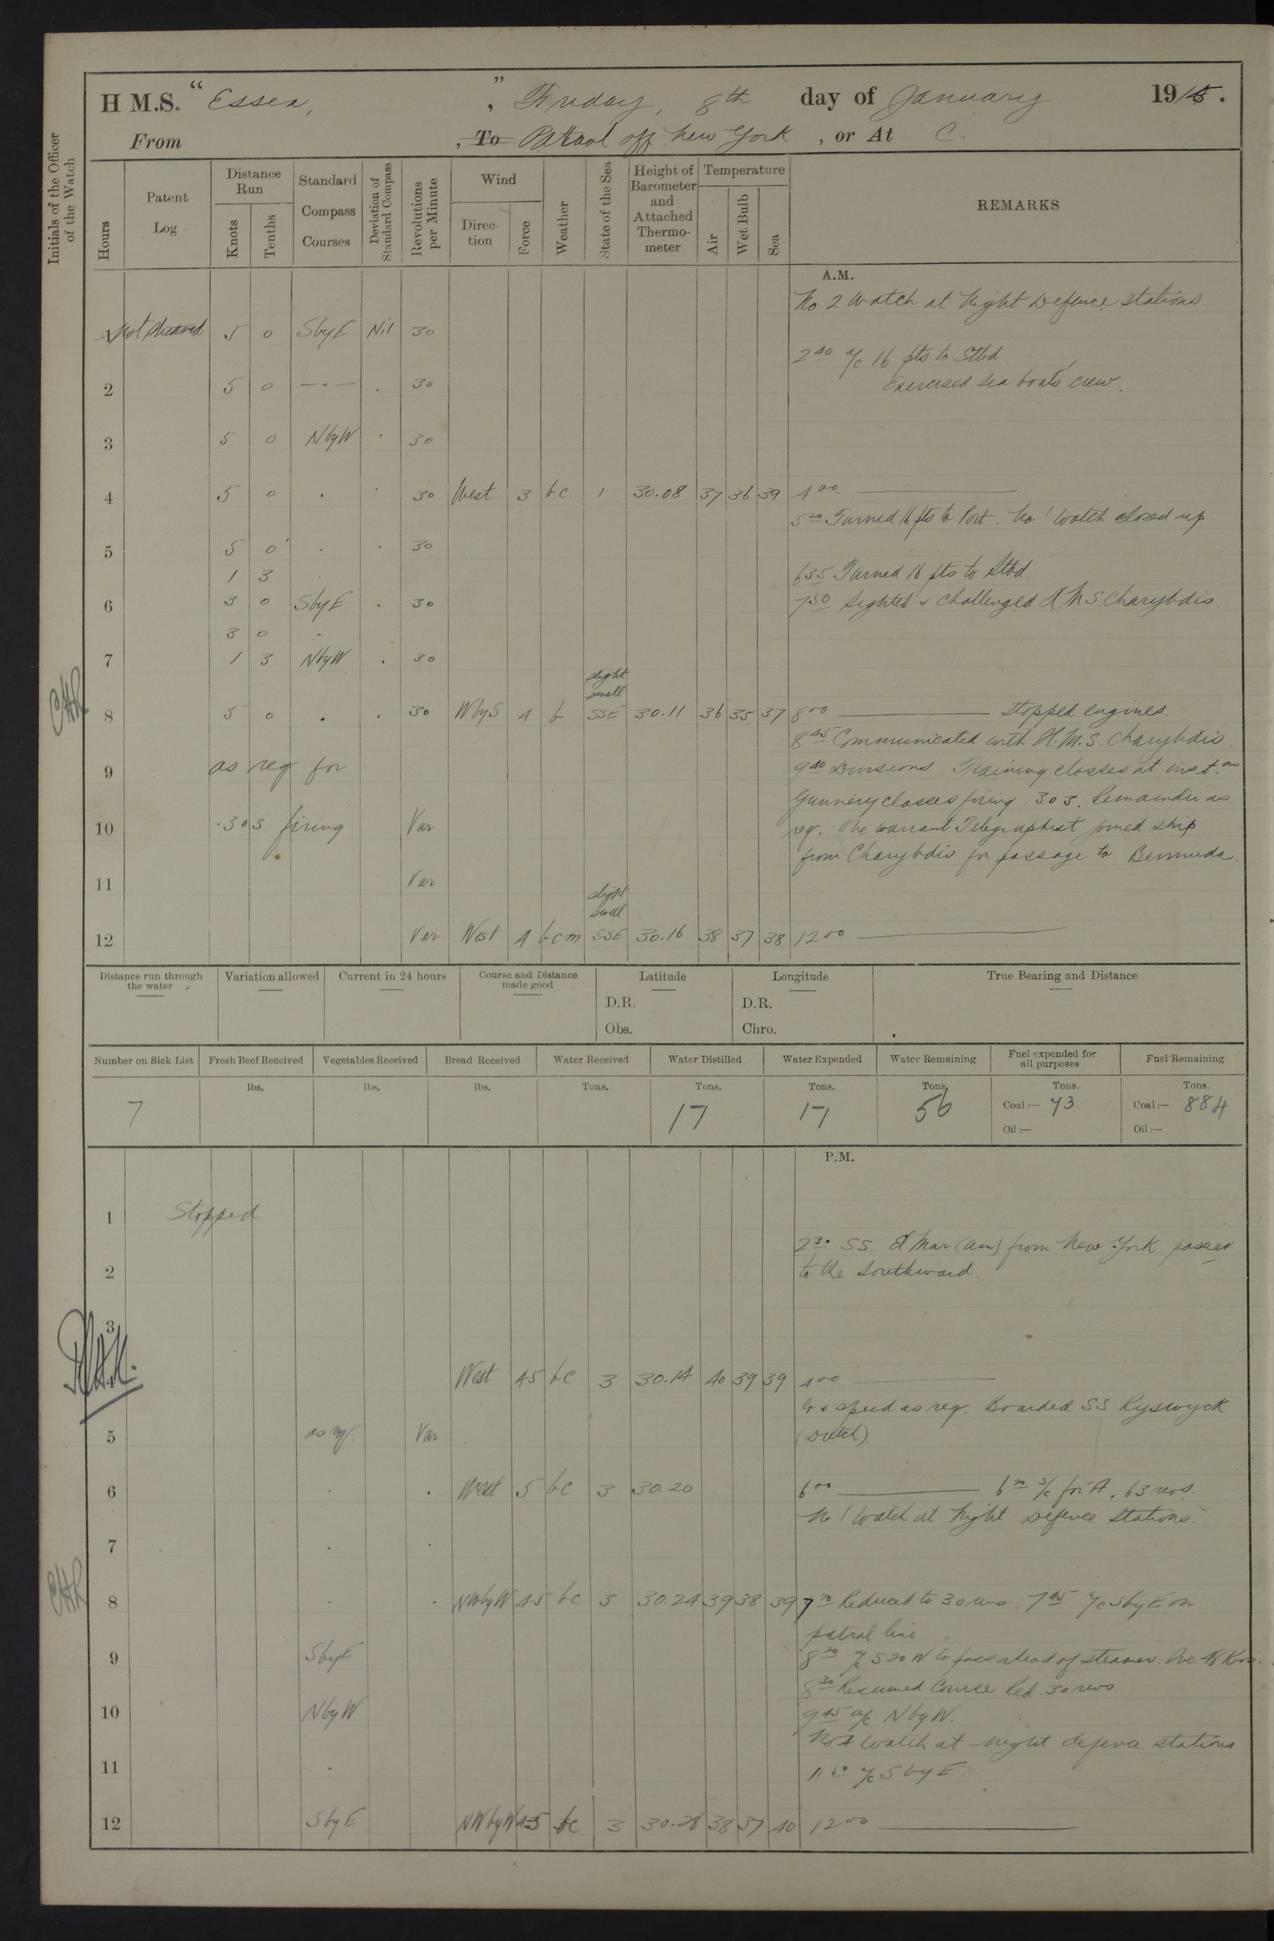 H M.S. “ Essex, ” , Friday, 8th day of January 1915.
From , To Patrol off New York , or At C.
Initials of the Officer of the Watch
Hours
Patent Log
Distance Run
Knots
Tenths
Standard Compass Courses
Deviation of Standard Compass
Revolutions per Minute
Wind
Direction
Force
Weather
State of the Sea
Height of Barometer and Attached Thermometer
Temperature
Air
Wet Bulb
Sea
REMARKS
A.M.
No 2 Watch at Night Defence stations.
1 Not Streamed 5 0 SbyE Nil 30
2 40 a/c 16 pts to Stbd
Exercised sea boats crew.
2 5 0 — " — . 30
3 5 0 NbyW . 30
4 5 0 . . 30 West 3 bc 1 30.08 37 36 39 4 00
5 20 Turned 16 pts to Port. No 1 Watch closed up.
5 5 0 . . 30
1 3
6 35 Turned 16 pts to Stbd
6 3 0 SbyE . 30
7 50 Sighted & challenged H.M.S. Charybdis.
3 0
7 1 3 NbyW . 30
slight swell
8 5 0 . . 30 WbyS 4 b SSE 30.11 36 35 37 8 00 Stopped engines
8 45 Communicated with H.M.S. Charybdis
9 as req for
9 40 Divisions. Training classes at inst.on
Gunnery classes firing .303. Remainder as
10 .303 firing Var
req. One Warrant Telegraphist joined ship
from Charybdis for passage to Bermuda.
11 Var
slight swell
12 Var West 4 bcm SSE 30.16 38 37 38 12 00
Distance run through the water
Variation allowed
Current in 24 hours
Course and Distance made good
Latitude
D.R.
Obs.
Longitude
D.R.
Chro.
True Bearing and Distance
Number on Sick List
Fresh Beef Received
Vegetables Received
Bread Received
Water Received
Water Distilled
Water Expended
Water Remaining
Fuel expended for all purposes
Fuel Remaining
lbs. lbs. lbs. Tons. Tons. Tons. Tons. Tons. Tons.
7 17 17 56 Coal:— 43 Coal:— 884
Oil:— Oil:—
P.M.
1 Stopped
2 30 SS. El Mar (Am) from New York passed
2 to the Southward.
3
4 West 4.5 bc 3 30.14 40 39 39 4 00
Co & speed as req. Boarded SS Ryswyck
5 as req. Var (Dutch).
6 . . West 5 bc 3 30.20 6 00 S/c for A, 63 revs.
No 1 Watch at Night Defence Stations.
7 . .
8 . . NWbyW 4.5 bc 3 30.24 39 38 39 Reduced to 30 revs. 7 45 a/c SbyE on
patrol line.
9 SbyE
a/c S20W to pass ahead of steamer.
8 30 Resumed Course Red. 30 revs.
10 NbyW 9 45 a/c NbyW.
Watch at night defence stations
11 . a/c SbyE
12 SbyE NWbyW 4.5 bc 3 38 37 40 12 00